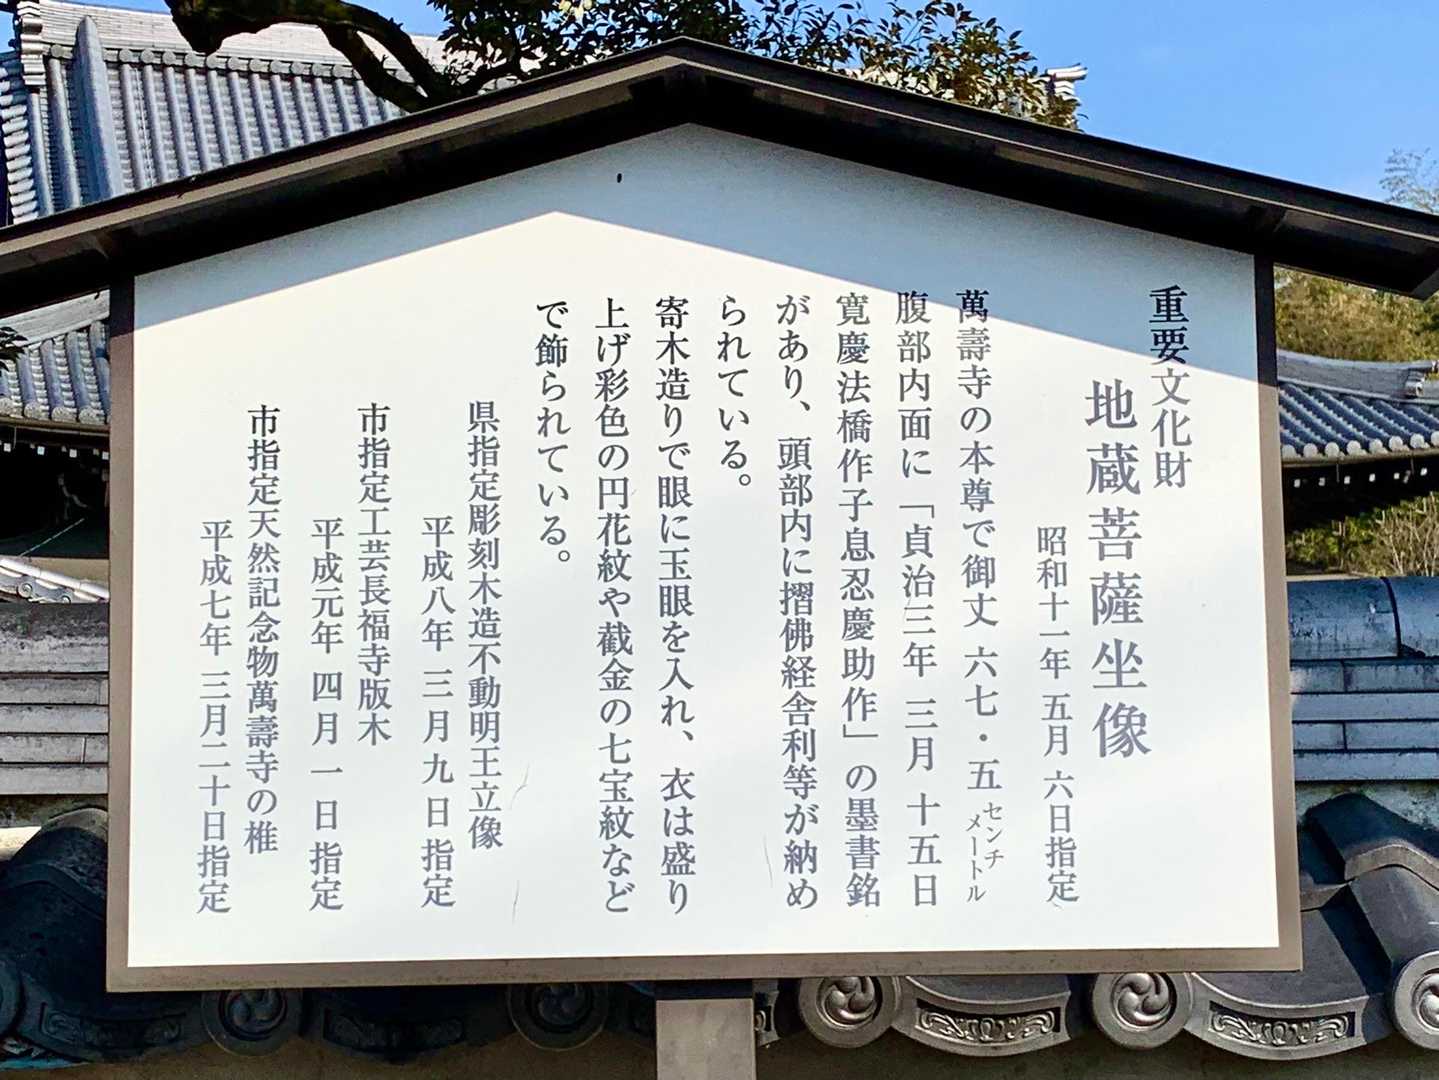 重要文化財
地蔵菩薩坐像
昭和十一年 五月 六日指定
萬壽寺の本尊で御丈 六七・五 センチメートル
腹部内面に「貞治三年 三月 十五日
寛慶法橋作子息忍慶助作」の墨書銘
があり、頭部内に摺佛経舎利等が納め
られている。
寄木造りで眼に玉眼を入れ、衣は盛り
上げ彩色の円花紋や截金の七宝紋など
で飾られている。
県指定彫刻木造不動明王立像
平成八年 三月 九日 指定
市指定工芸長福寺版木
平成元年 四月 一日 指定
市指定天然記念物萬壽寺の椎
平成七年 三月二十日指定